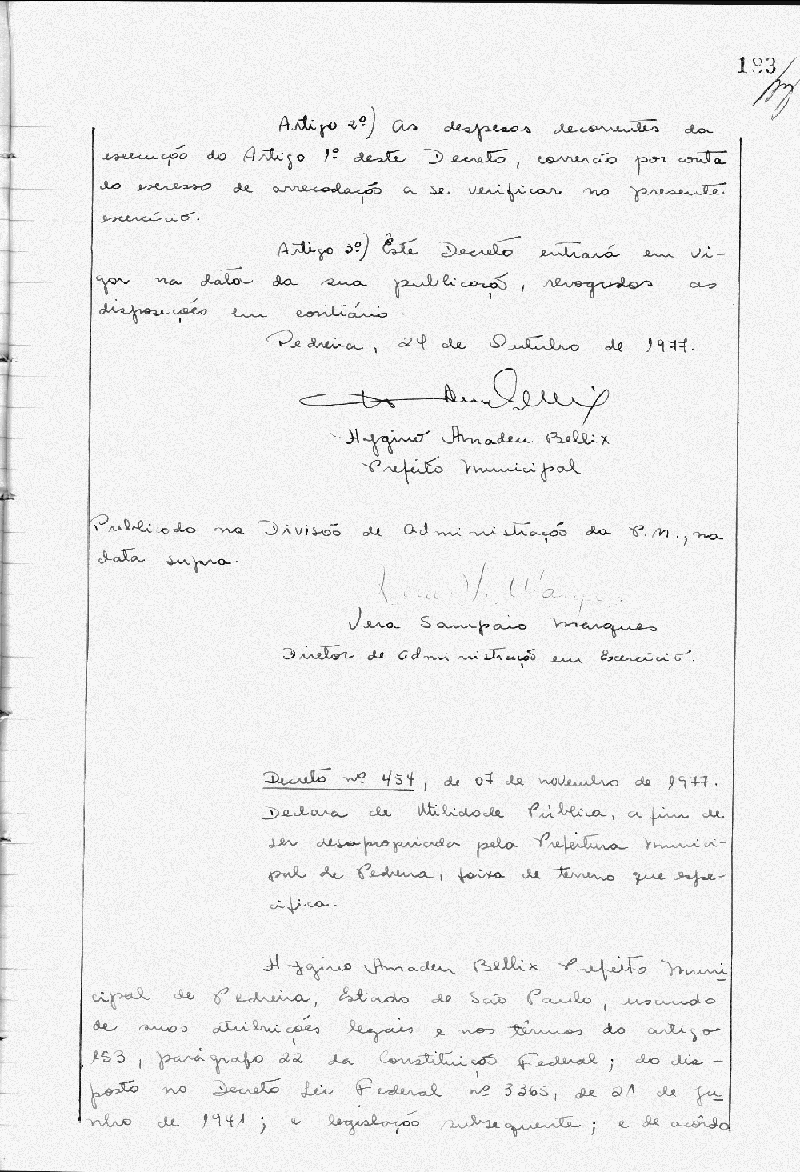 193
Artigo 2º) As despesas decorrentes da
execução do Artigo 1º deste Decreto, correrão por conta
do excesso de arrecadação a se verificar no presente
exercício.
Artigo 3º) Êste Decreto entrará em vi-
gor na data da sua publicação, revogadas as
disposições em contrário
Pedreira, 24 de Outubro de 1977.
Hygino Amadeu Bellix
Prefeito Municipal
Publicado na Divisão de Administração da P.M., na
data supra.
Vera Sampaio Marques
Diretor de Administração em Exercício.
Decreto nº 454, de 07 de novembro de 1977.
Declara de Utilidade Pública, a fim de
ser desapropriada pela Prefeitura Munici-
pal de Pedreira, faixa de terreno que espe-
cifica.
Hygino Amadeu Bellix Prefeito Muni
cipal de Pedreira, Estado de São Paulo, usando
de suas atribuições legais e nos têrmos do artigo
153, parágrafo 22 da Constituição Federal; do dis-
posto no Decreto Lei Federal nº 3365, de 21 de ju
nho de 1941; e legislação subsequente; e de acôrdo